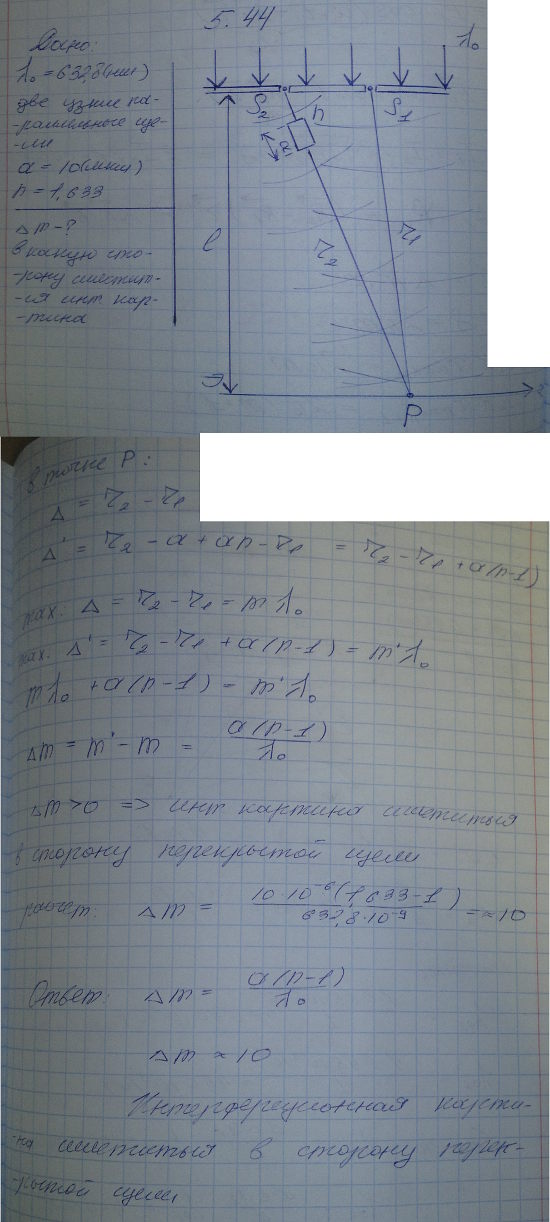 5.44
Дано:
λ₀ = 632,8(нм)
две узкие па-
-раллельные ще-
-ли
a = 10(мкм)
n = 1,633
Δm - ?
в какую сто-
-рону сместит-
-ся инт кар-
-тина
λ₀
S₂
n
S₁
a
l
r₂
r₁
Э
P
в точке P:
Δ = r₂ - r₁
Δ' = r₂ - a + an - r₁ = r₂ - r₁ + a(n-1)
max: Δ = r₂ - r₁ = mλ₀
max: Δ' = r₂ - r₁ + a(n-1) = m'λ₀
mλ₀ + a(n-1) = m'λ₀
Δm = m' - m = a(n-1)/λ₀
Δm > 0 => инт картина сместится
в сторону перекрытой щели
расчет: Δm = 10·10⁻⁶(1,633-1)/632,8·10⁻⁹ = ≈10
Ответ: Δm = a(n-1)/λ₀
Δm ≈ 10
Интерференционная карти-
-на сместится в сторону перек-
-рытой щели